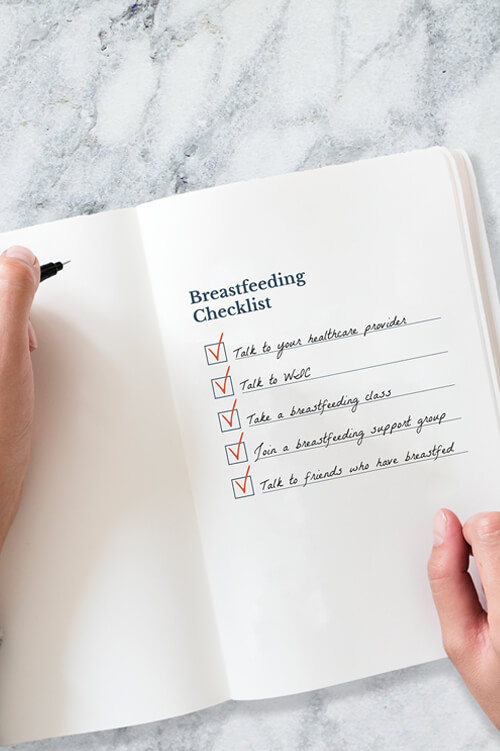 Breastfeeding
Checklist
Talk to your healthcare provider
Talk to WIC
Take a breastfeeding class
Join a breastfeeding support group
Talk to friends who have breastfed